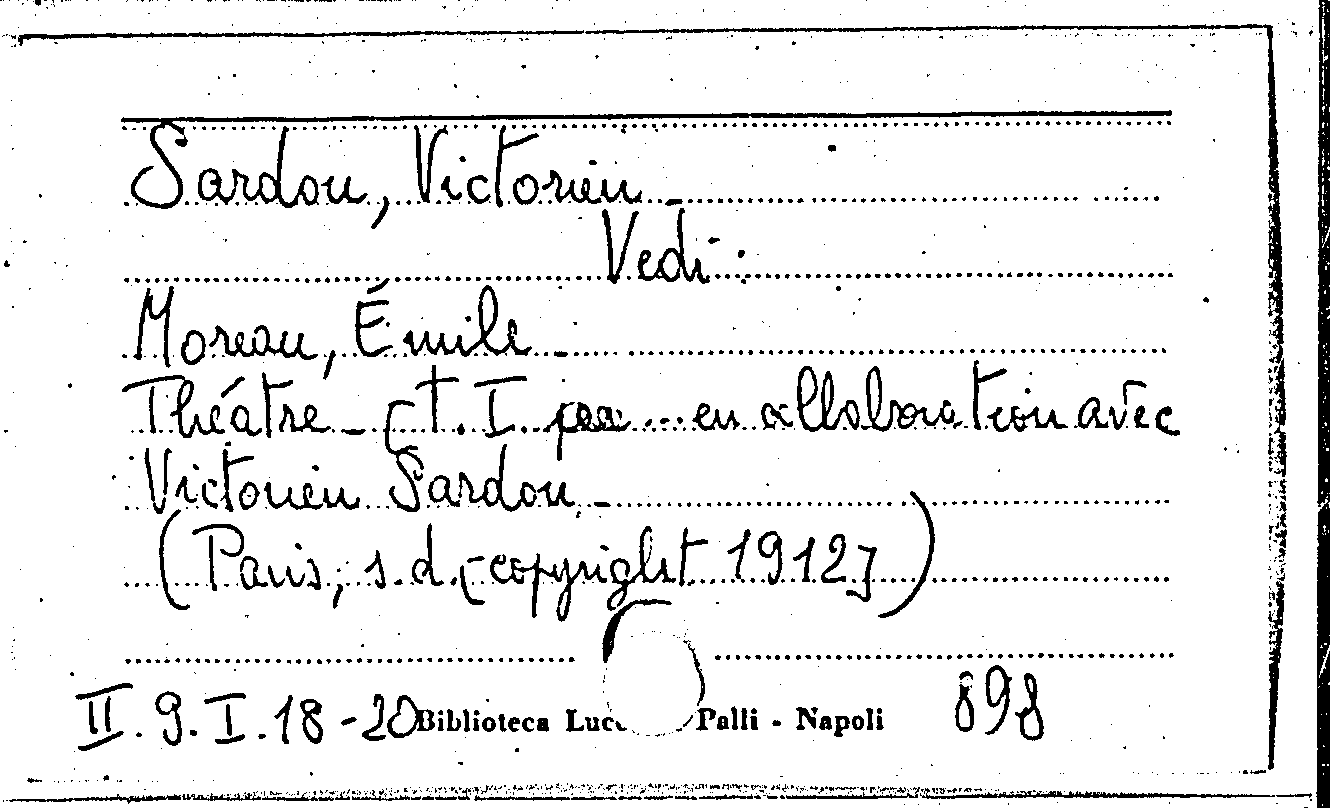 Sardou, Victorien -
Vedi:
Moreau, Émile -
Théâtre - [t. I par ... en collaboration avec
Victorien Sardou -
(Paris, s. d. [copyright 1912])
II. 9. I. 18 - 20 Biblioteca Palli - Napoli 898